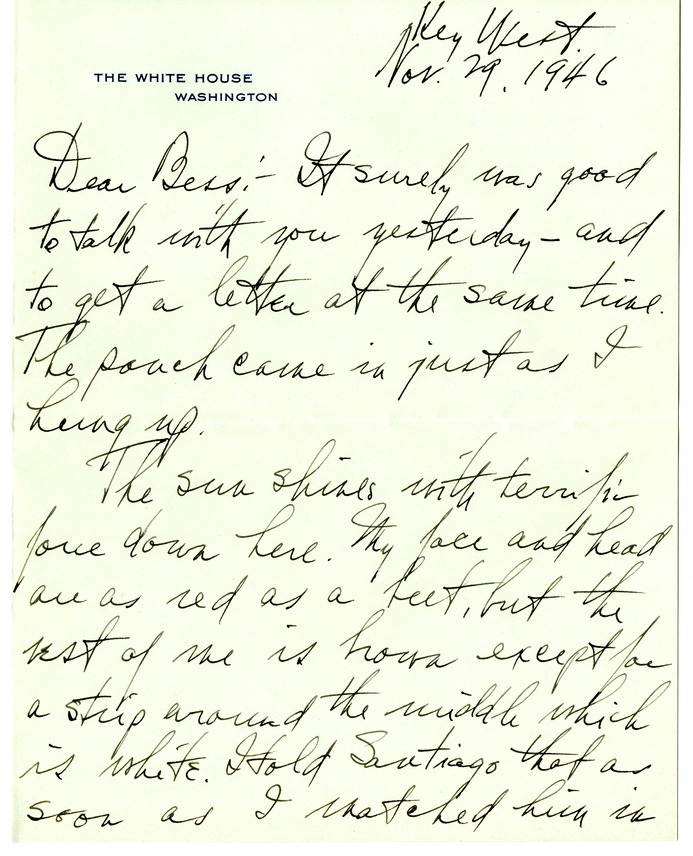 Key West.
Nov. 29, 1946
THE WHITE HOUSE
WASHINGTON
Dear Bess:- It surely was good
to talk with you yesterday - and
to get a letter at the same time.
The pouch came in just as I
hung up.
The sun shines with terrific
force down here. My face and head
are as red as a beet, but the
rest of me is brown except for
a strip around the middle which
is white. I told Santiago that as
soon as I matched him in